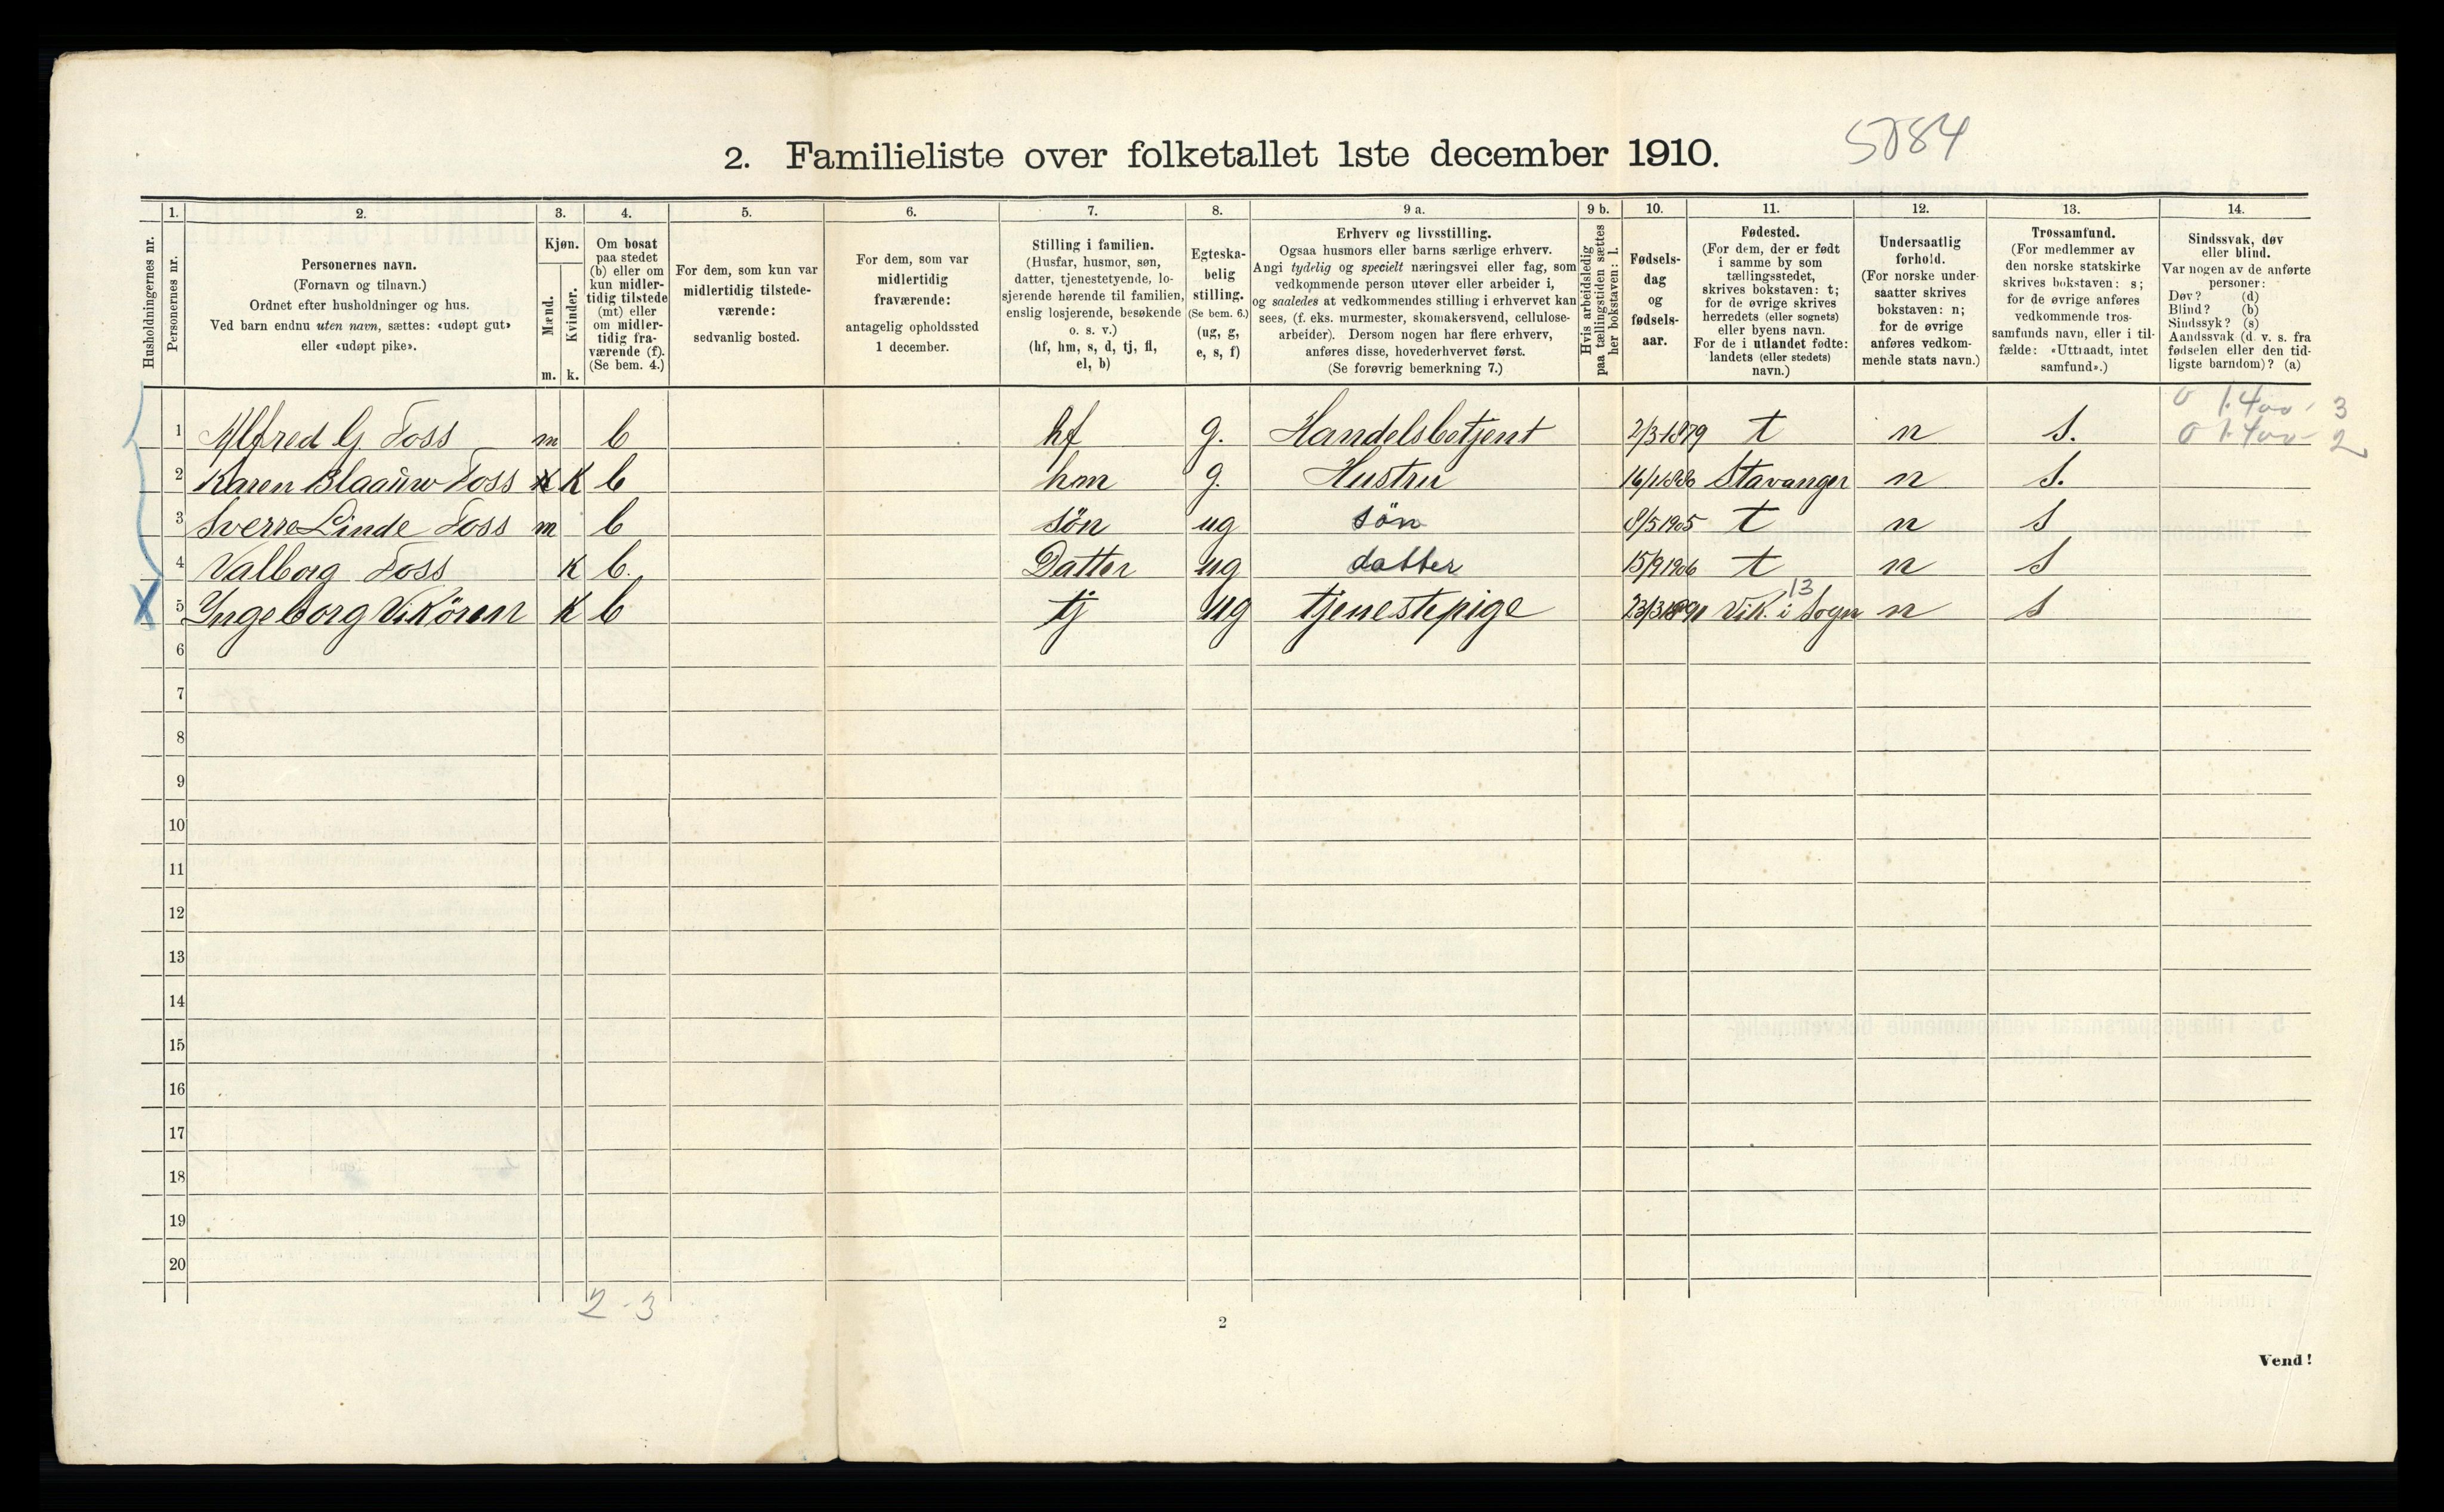 2. Familieliste over folketallet 1ste december 1910.
5084
Husholdningernes nr.
1.
Personernes nr.
2.
Personernes navn.
(Fornavn og tilnavn.)
Ordnet efter husholdninger og hus.
Ved barn endnu uten navn, sættes: «udøpt gut»
eller «udøpt pike».
3.
Kjøn.
Mænd.
Kvinder.
m. k.
4.
Om bosat
paa stedet
(b) eller om
kun midler-
tidig tilstede
(mt) eller
om midler-
tidig fra-
værende (f).
(Se bem. 4.)
5.
For dem, som kun var
midlertidig tilstede-
værende:
sedvanlig bosted.
6.
For dem, som var
midlertidig
fraværende:
antagelig opholdssted
1 december.
7.
Stilling i familien.
(Husfar, husmor, søn,
datter, tjenestetyende, lo-
sjerende hørende til familien,
enslig losjerende, besøkende
o. s. v.)
(hf, hm, s, d, tj, fl,
el, b)
8.
Egteska-
belig
stilling.
(Se bem. 6.)
(ug, g,
e, s, f)
9 a.
Erhverv og livsstilling.
Ogsaa husmors eller barns særlige erhverv.
Angi tydelig og specielt næringsvei eller fag, som
vedkommende person utøver eller arbeider i,
og saaledes at vedkommendes stilling i erhvervet kan
sees, (f. eks. murmester, skomakersvend, cellulose-
arbeider). Dersom nogen har flere erhverv,
anføres disse, hovederhvervet først.
(Se forøvrig bemerkning 7.)
9 b.
Hvis arbeidsledig
paa tællingstiden sættes
her bokstaven: l.
10.
Fødsels-
dag
og
fødsels-
aar.
11.
Fødested.
(For dem, der er født
i samme by som
tællingsstedet,
skrives bokstaven: t;
for de øvrige skrives
herredets (eller sognets)
eller byens navn.
For de i utlandet fødte:
landets (eller stedets)
navn.)
12.
Undersaatlig
forhold.
(For norske under-
saatter skrives
bokstaven: n;
for de øvrige
anføres vedkom-
mende stats navn.)
13.
Trossamfund.
(For medlemmer av
den norske statskirke
skrives bokstaven: s;
for de øvrige anføres
vedkommende tros-
samfunds navn, eller i til-
fælde: «Uttraadt, intet
samfund».)
14.
Sindssvak, døv
eller blind.
Var nogen av de anførte
personer:
Døv? (d)
Blind? (b)
Sindssyk? (s)
Aandssvak (d. v. s. fra
fødselen eller den tid-
ligste barndom)? (a)
0 1.400 - 3
0 1.400 - 2
1 Alfred G. Foss m b hf g. Handelsbetjent 2/3 1879 t n S.
2 Karen Blaauw Foss K b hm g. Hustru 16/1 1880 Stavanger n S.
3 Sverre Linde Foss m b søn ug søn 8/5 1905 t n S
4 Valborg Foss K b. Datter ug datter 15/9 1906 t n S
13
X 5 Ingeborg Vikören K b tj ug tjenestepige 23/3 1891 Vik. i Sogn n S
6
7
8
9
10
11
12
13
14
15
16
17
18
19
20
2 - 3
2
Vend!